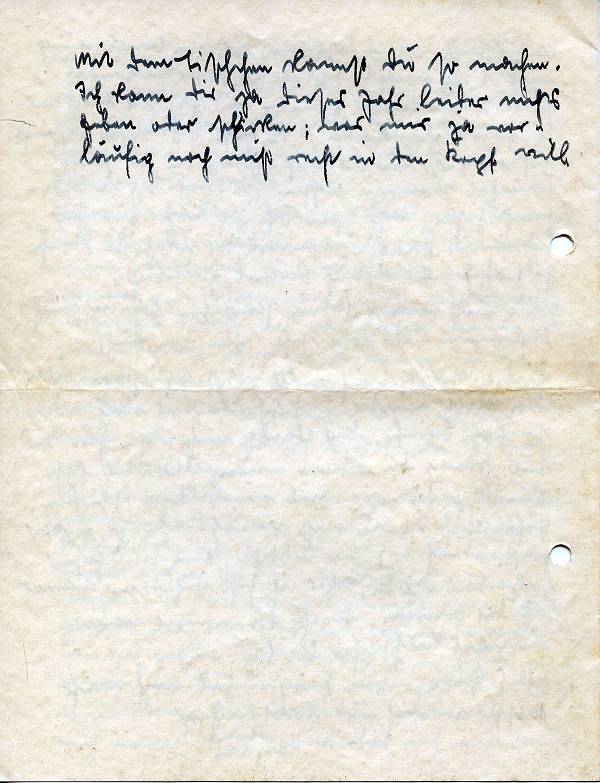 Mit dem Tischchen kannst Du so machen.
Ich kann Dir ja dieses Jahr leider nichts
geben oder schicken; was mir ja vor-
läufig noch nicht recht in den Kopf will.